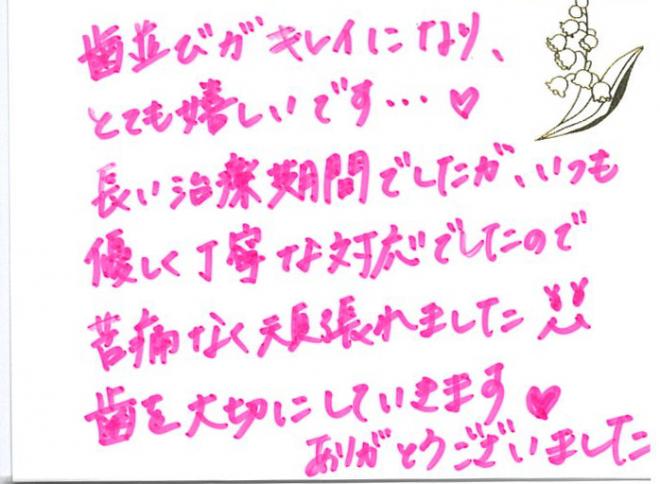 歯並びがキレイになり、
とても嬉しいです…♡
長い治療期間でしたが、いつも
優しく丁寧な対応でしたので
苦痛なく頑張れました
歯を大切にしていきます♡
ありがとうございました